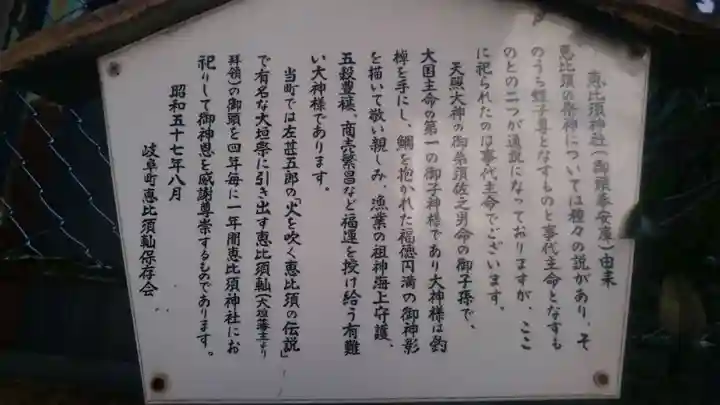 恵比須神社(御頭奉安處)由来
恵比須の祭神については種々の説があり、そ
のうち蛭子尊となすものと事代主命となすも
のとの二つが通説になっておりますが、ここ
に祀られたのは事代主命でございます。
天照大神の御弟須佐之男命の御子孫で、
大国主命の第一の御子神様であり大神様は釣
棹を手にし、鯛を抱かれた福徳円満の御神影
を描いて敬い親しみ、漁業の祖神海上守護、
五穀豊穣、商売繁昌など福運を授け給う有難
い大神様であります。
当町では左甚五郎の「火を吹く恵比須の伝説」
で有名な大垣祭に引き出す恵比須軕(大垣藩主より
拝領)の御頭を四年毎に一年間恵比須神社にお
祀りして御神恩を感謝尊崇するものであります。
昭和五十七年八月
岐阜町恵比須軕保存会